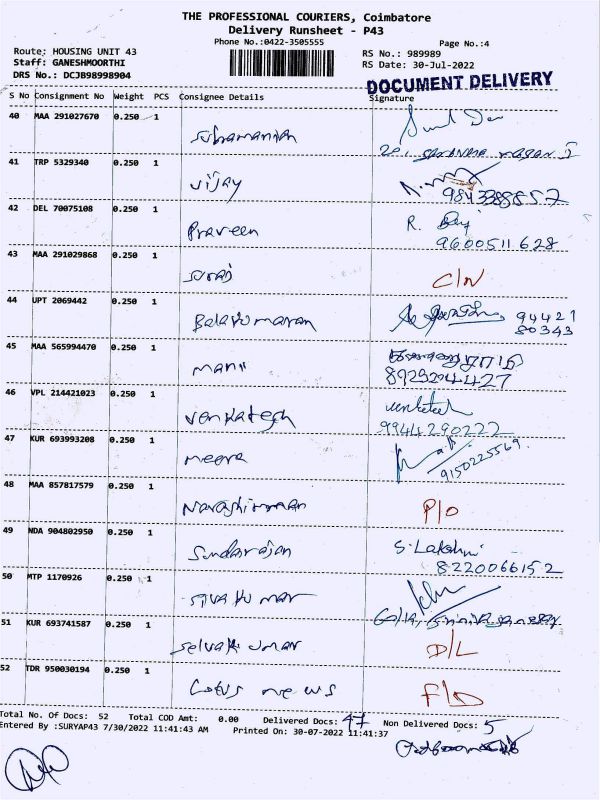 THE PROFESSIONAL COURIERS, Coimbatore
Delivery Runsheet - P43
Phone No.:0422-3505555
Page No.:4
Route: HOUSING UNIT 43
RS No.: 989989
Staff: GANESHMOORTHI
RS Date: 30-Jul-2022
DRS No.: DCJB98998904
DOCUMENT DELIVERY
S No Consignment No Weight PCS Consignee Details Signature
40 MAA 291027670 0.250 1
Subramanian
41 TRP 5329340 0.250 1
Vijay
42 DEL 70075108 0.250 1
Praveen R.
9600511628
43 MAA 291029868 0.250 1
Suraj C/N
44 UPT 2069442 0.250 1
Balakumaran 94421
80343
45 MAA 565994470 0.250 1
Mani
46 VPL 214421023 0.250 1
Venkatesh
9944290222
47 KUR 693993208 0.250 1
Meera 9150225569
48 MAA 857817579 0.250 1
P/O
49 NDA 904802950 0.250 1
Sundarajan S. Lakshmi
8220066152
50 MTP 1170926 0.250 1
Sivakumar
51 KUR 693741587 0.250 1
Selvakumar D/L
52 TDR 950030194 0.250 1
Lotus news F/D
Total No. Of Docs: 52 Total COD Amt: 0.00 Delivered Docs: 47 Non Delivered Docs: 5
Entered By :SURYAP43 7/30/2022 11:41:43 AM Printed On: 30-07-2022 11:41:37